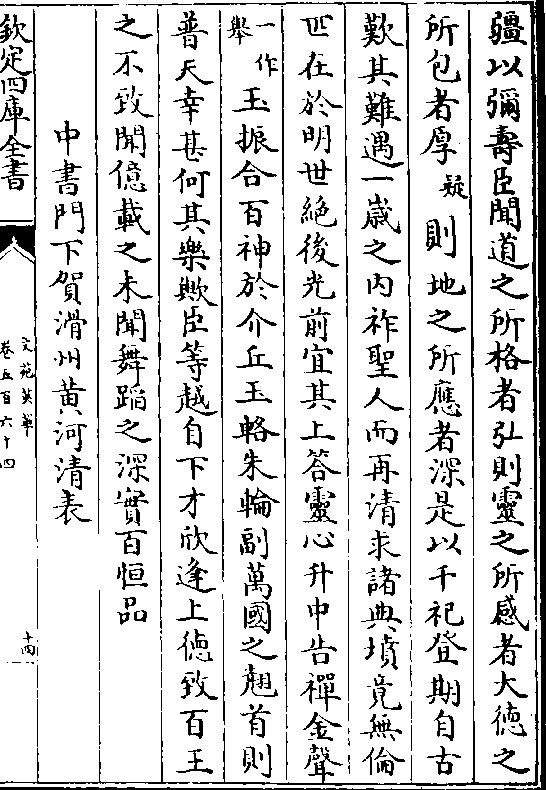 疆以彌壽臣聞道之所格者弘則靈之所感者大德之
所包者厚疑則地之所應者深是以千祀登期自古
歎其難遇一歲之内祚聖人而再清求諸典墳竟無倫
匹在於明世絶後光前宜其上答靈心升中告禪金聲
一作舉玉振合百神於介丘玉輅朱輪副萬國之翹首則
普天幸甚何其樂歟臣等越自下才欣逢上德致百王
之不致聞億載之未聞舞蹈之深實百恒品
中書門下賀滑州黄河清表
欽定四庫全書
文苑英華
卷五百六十四
十四